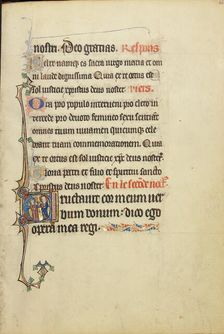 nostri. Deo gratias. Respons
Felix namez es sacra virgo maria et om
ni laude dignissima Quia ex te ortus est
sol iusticie xpistus deus noster. Vers.
Ora pro populo interueni pro clero in
tercede pro deuoto femineo sexu sentiant
omnes tuum iuuamen quicumque ce
lebrant tuam commemorationem. Qui
a ex te ortus est sol iusticie xpc deus noster.
Gloria patri et filio et spiritui sancto
xpistus deus noster. En le seconde
Eructauit cor meum uer
bum bonum: dico ego
opera mea regi.